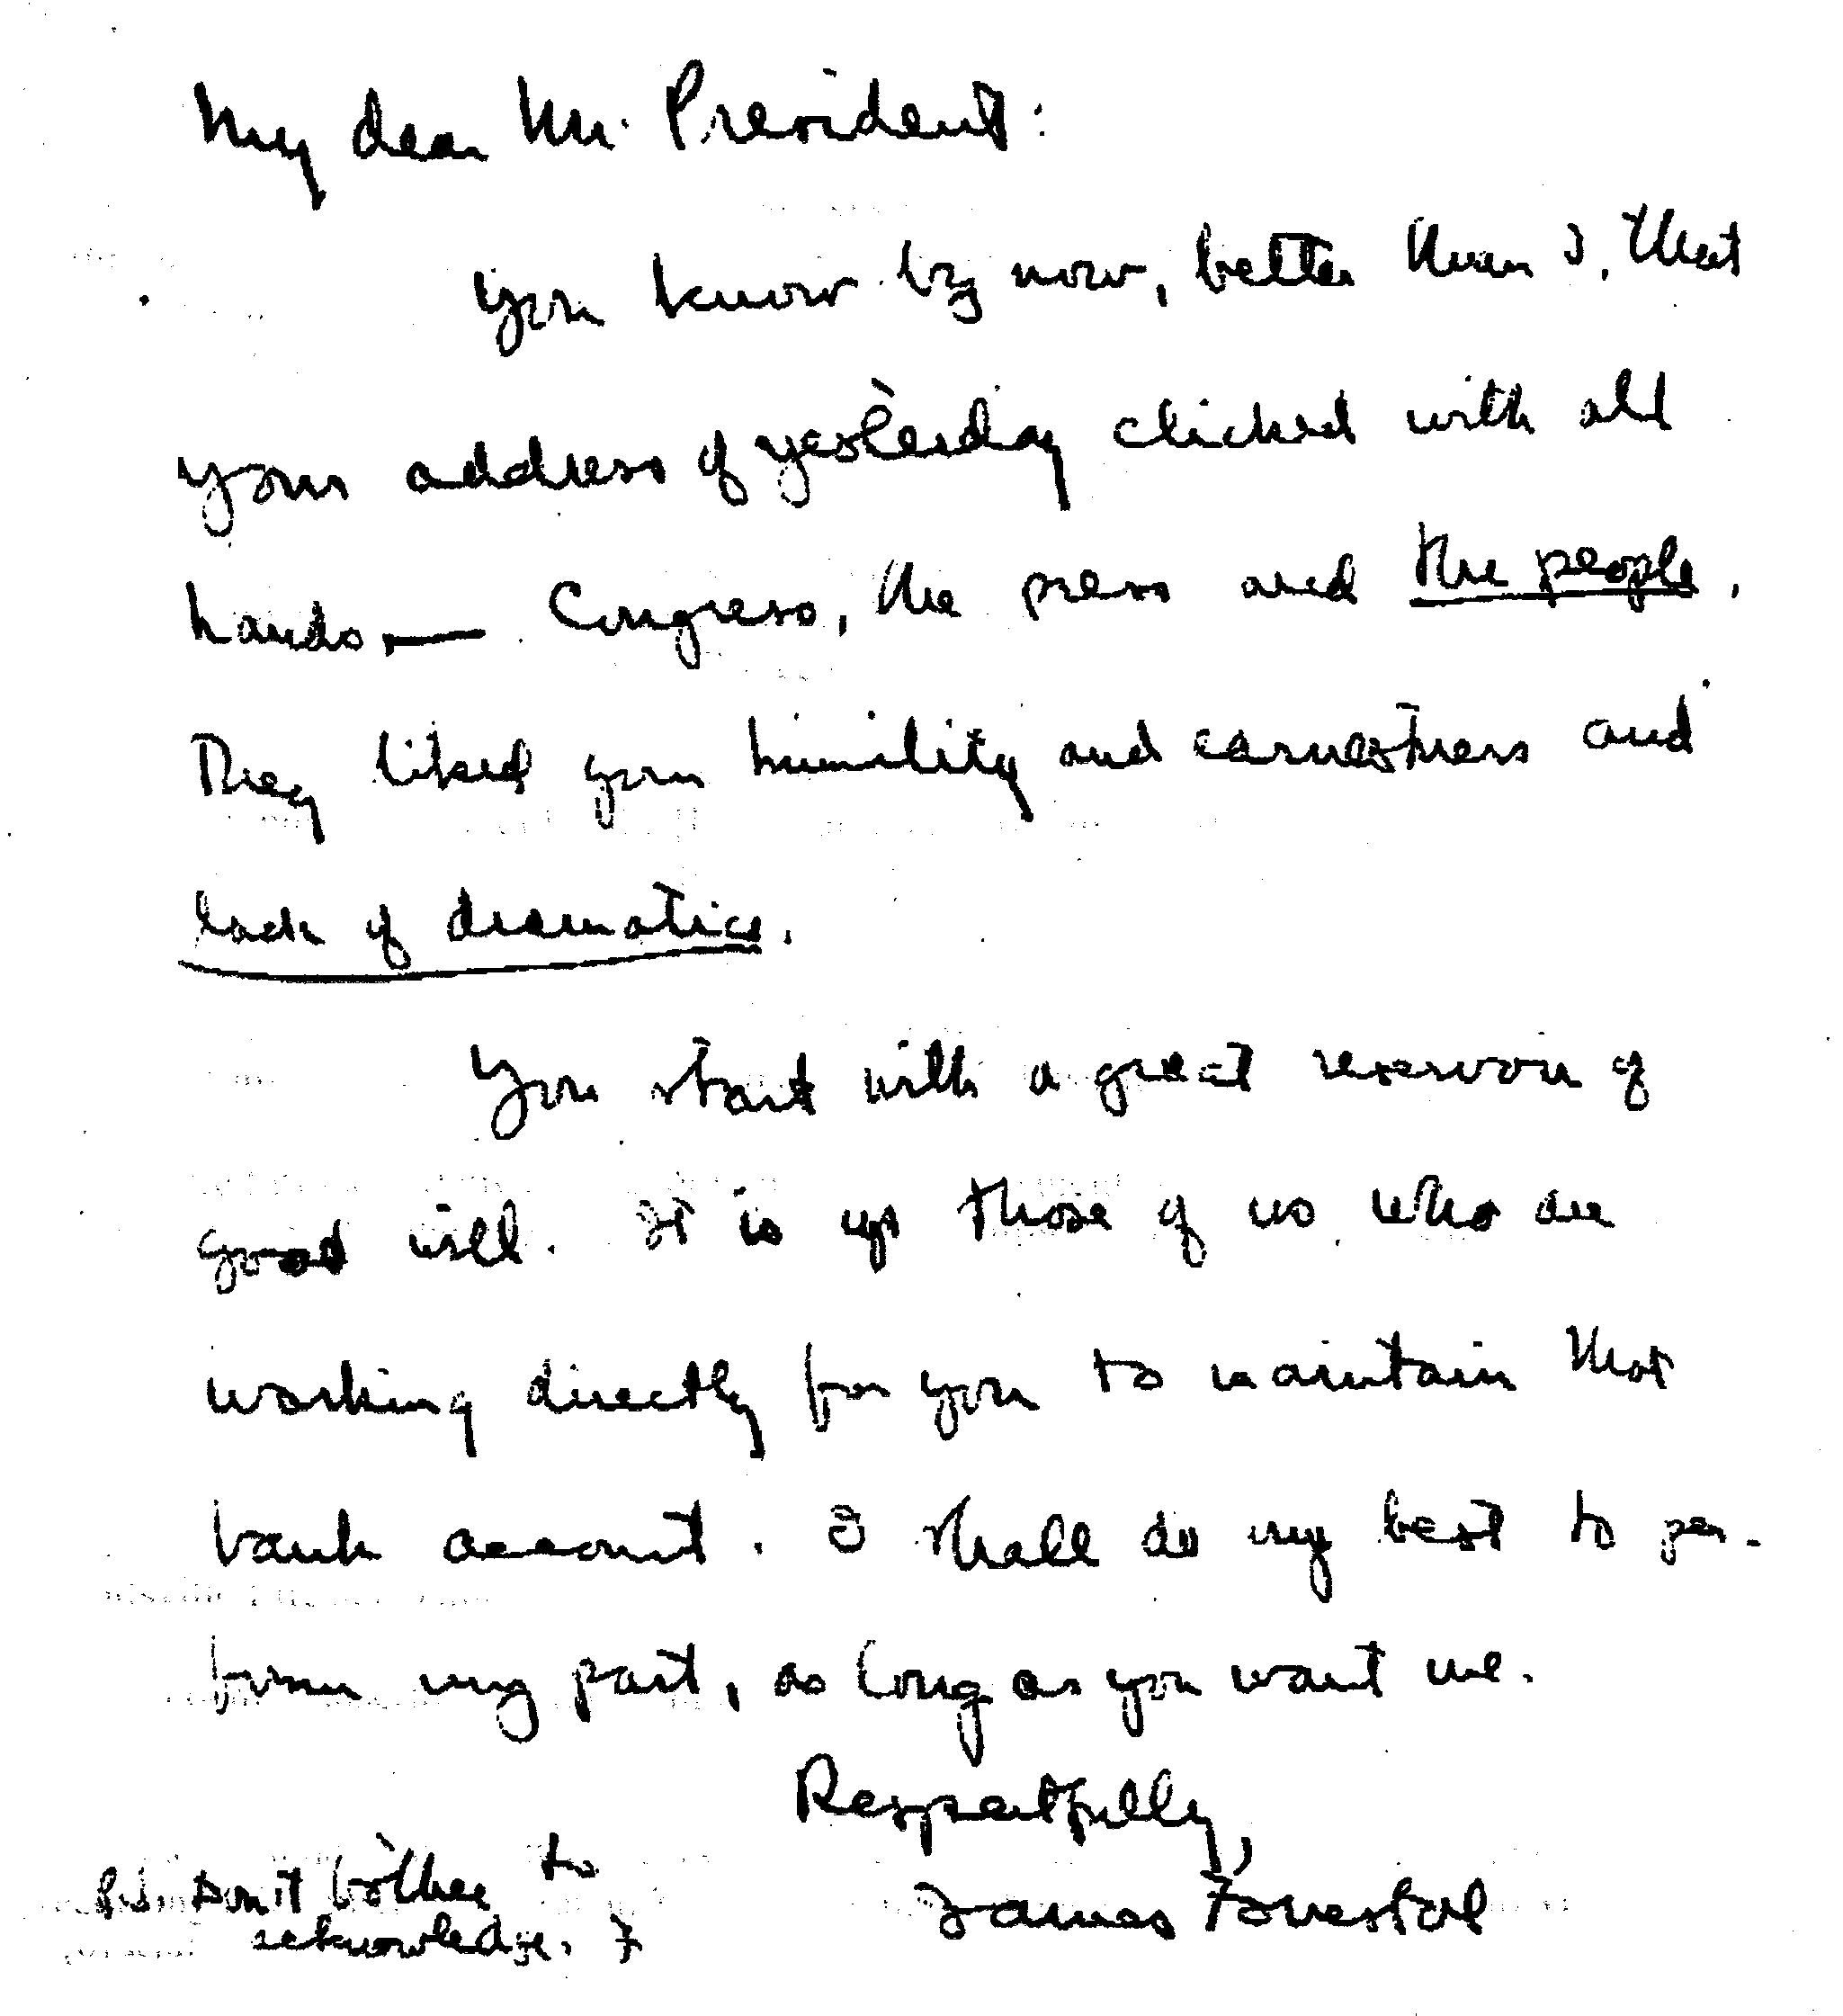 My dear Mr. President:
You know by now, better than I, that
your address of yesterday clicked with all
hands — Congress, the press and the people.
They liked your humility and earnestness and
lack of dramatics.
You start with a great reservoir of
good will. It is up those of us who are
working directly for you to maintain that
bank account. I shall do my best to per-
form my part, as long as you want me.
Respectfully,
James Forrestal
P.S. Don't bother to
acknowledge. F